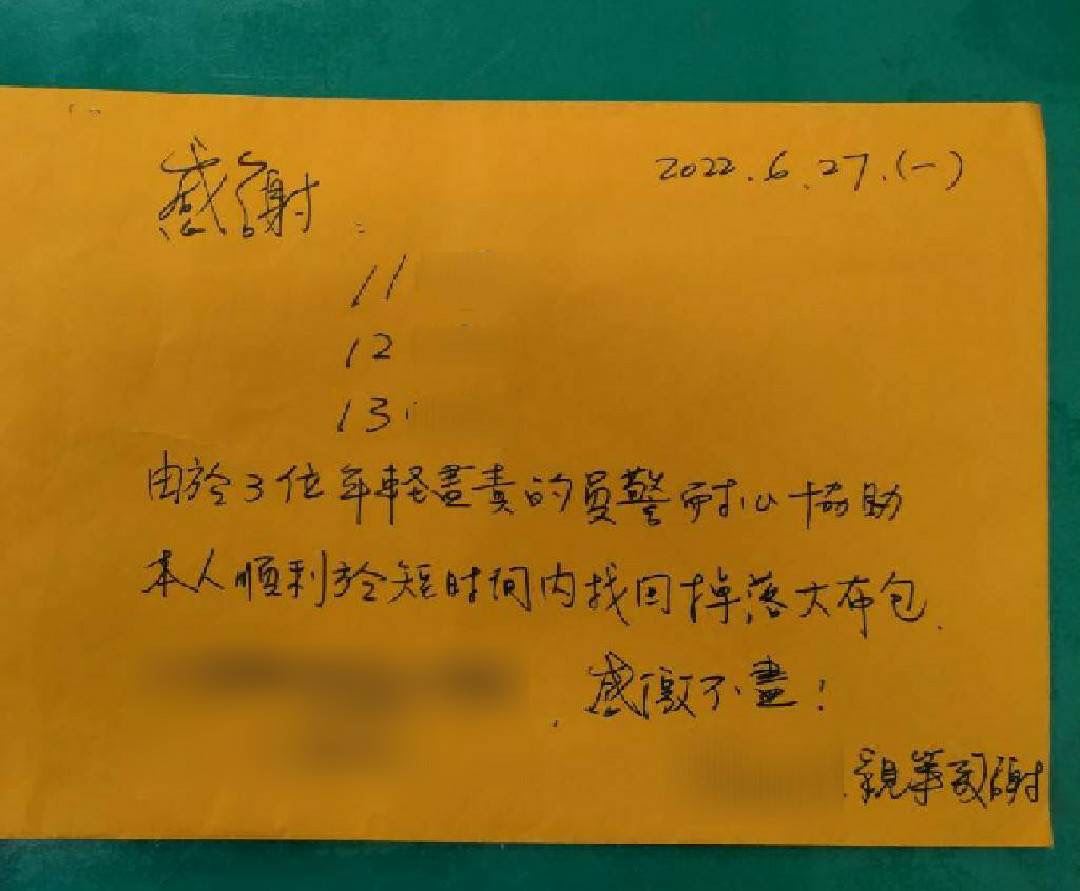 2022.6.27.(一)
感謝:
11
12
13
由於3位年軽盡責的員警耐心協助
本人順利於短时间內找回掉落大布包.
感激不盡!
親筆致謝